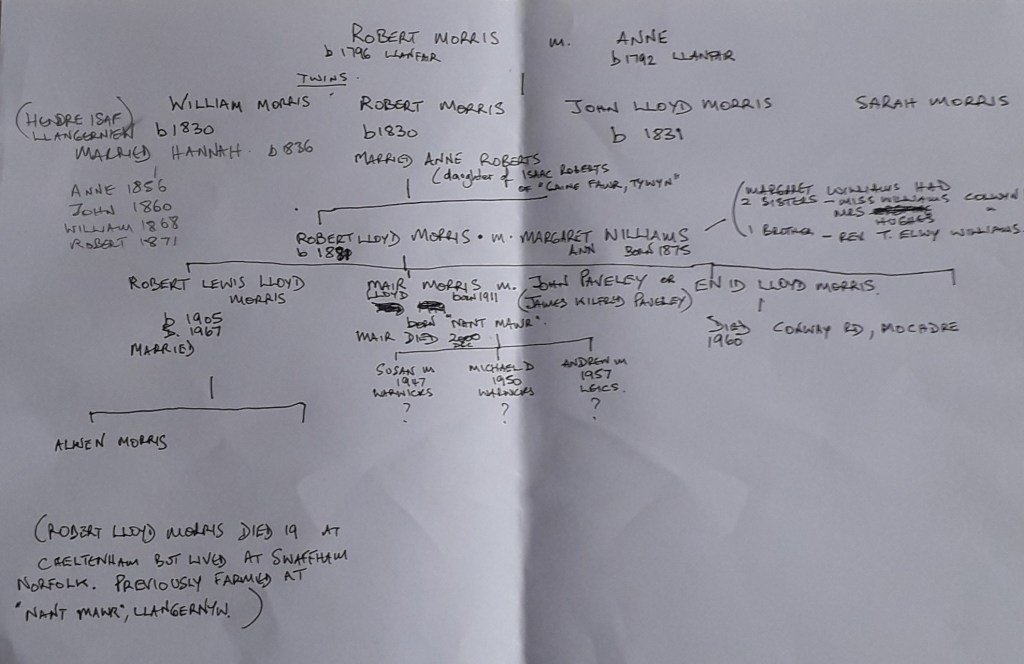 ROBERT MORRIS m. ANNE
b 1796 LLANFAIR b 1792 LLANFAIR
TWINS.
(HENDRE ISAF LLANGERNIEW)
WILLIAM MORRIS ROBERT MORRIS JOHN LLOYD MORRIS SARAH MORRIS
b 1830 b 1830 b 1831
MARRIED HANNAH. b 1836
ANNE 1856
JOHN 1860
WILLIAM 1868
ROBERT 1871
MARRIED ANNE ROBERTS
(daughter of ISAAC ROBERTS
OF "GAINE FAWR, TYWYN"
(MARGARET WILLIAMS HAD
2 SISTERS - MISS WILLIAMS COLWYN
MRS HUGHES "
1 BROTHER - REV T. ELWY WILLIAMS.
ROBERT LLOYD MORRIS. m. MARGARET WILLIAMS
ANN BORN 1875
ROBERT LEWIS LLOYD
MORRIS
b 1905
D. 1967
MARRIED
MAIR MORRIS m. JOHN PAVELEY OR
LLOYD born 1911 (JAMES KILFRED PAVELEY)
born "NANT MAWR".
MAIR DIED 2000
DEC
ENID LLOYD MORRIS.
DIED CONWAY RD, MOCHDRE
1960
SUSAN M
1947
WARWICKS
?
MICHAEL D
1950
WARWICKS
?
ANDREW M
1957
LEICS.
?
ALWEN MORRIS
(ROBERT LLOYD MORRIS DIED 19 AT
CHELTENHAM BUT LIVED AT SWAFFHAM
NORFOLK. PREVIOUSLY FARMED AT
"NANT MAWR", LLANGERNYW.)